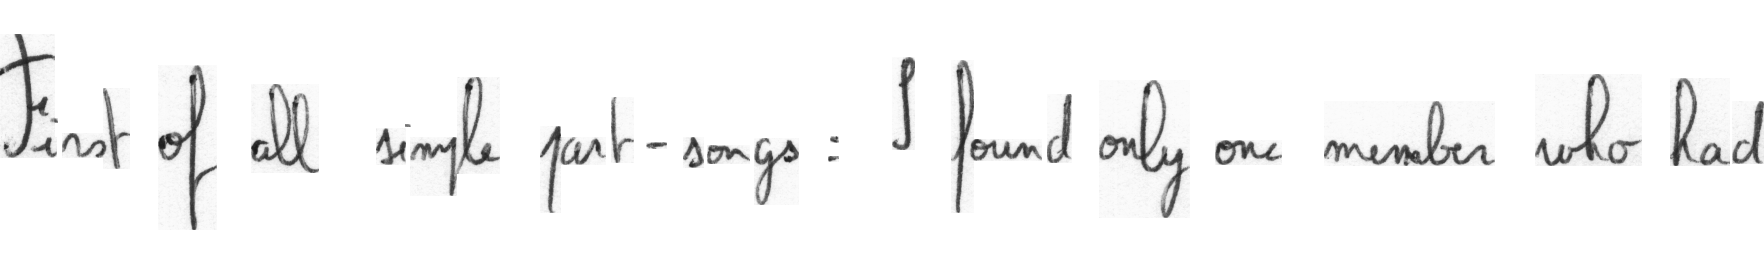 First of all simple part-songs: I found only one member who had